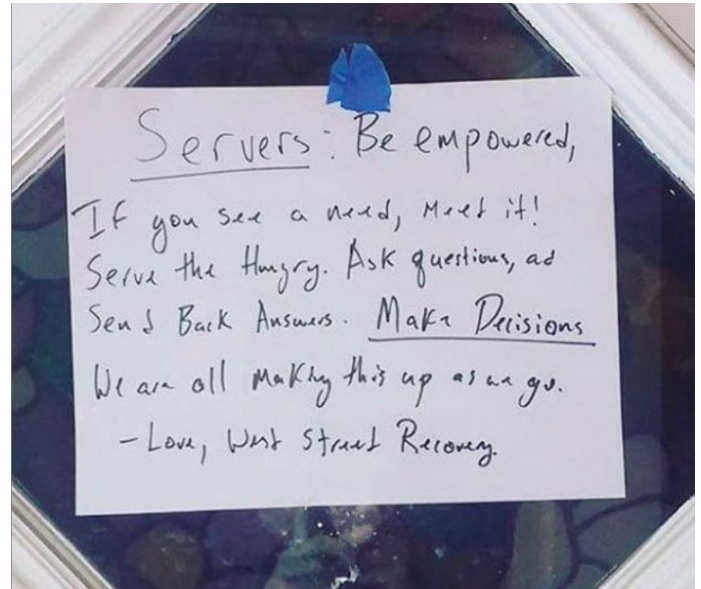 Servers: Be empowered,
If you see a need, Meet it!
Serve the Hungry. Ask questions, ad
Send Back Answers. Make Decisions
We are all Making this up as we go.
- Love, West Street Recovery.